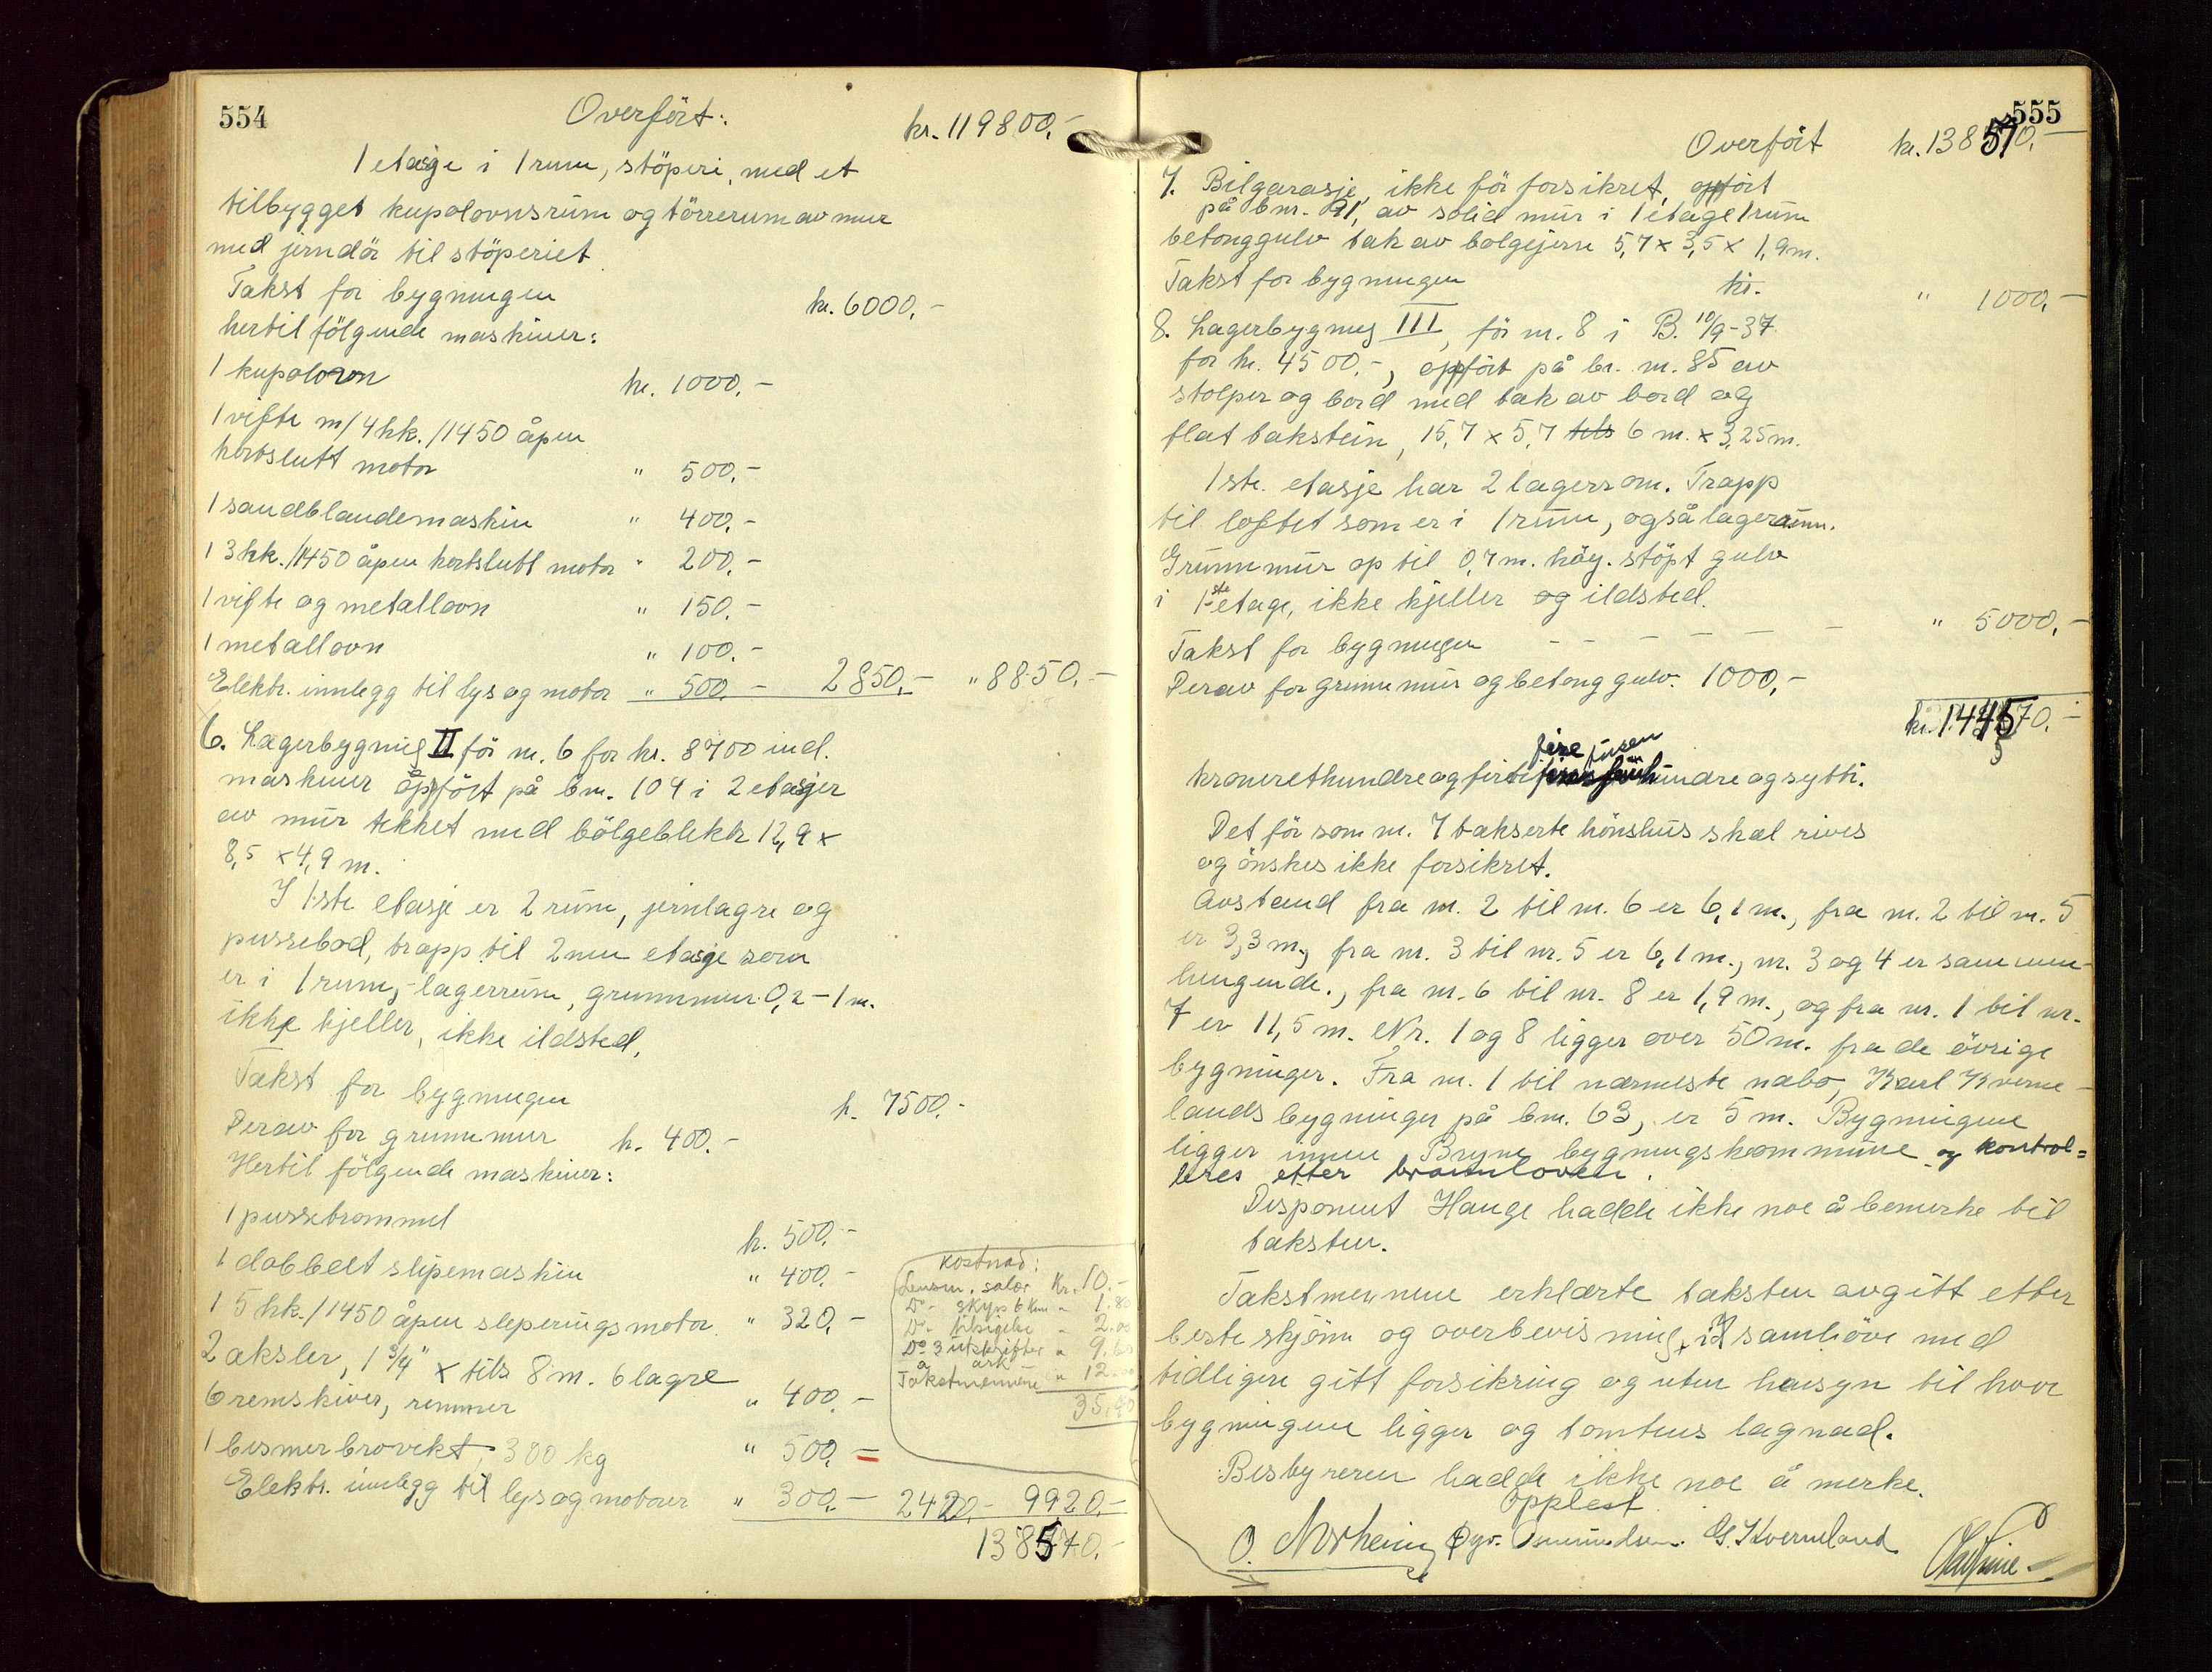 554
Overfört:
kr. 119800,-
1 etasje i 1 rum, stöperi, med et
tilbygget kupolovnsrum og törrerum av mur
med jerndör til stöperiet
Takst for bygningen kr. 6000,-
hertil fölgende maskiner:
1 kupolovn kr. 1000,-
1 vifte m/4 hk./1450 åpen
kortslutt motor " 500,-
1 sandblandemaskin " 400,-
1 3 hk./1450 åpen kortslutt motor " 200,-
1 vifte og metallovn " 150,-
1 metallovn " 100,-
Elektr. innlegg til lys og motor " 500,- 2850,- " 8850,-
6. Lagerbygning II för nr. 6 for kr. 8700 incl.
maskiner oppfört på bnr. 109 i 2 etasjer
av mur tekket med bölgeblekk 12,9 x
8,5 x 4,9 m.
I 1ste etasje er 2 rum, jernlagre og
pussebod, trapp til 2nen etasje som
er i 1 rum, - lagerrum, grunnmur 0,2 - 1 m.
ikke kjeller, ikke ildsted.
Takst for bygningen k. 7500,-
Derav for grunnmur k. 400,-
Hertil fölgende maskiner:
1 pussetrommel k. 500,-
1 dobbelt slipemaskin " 400,-
1 5 hk./1450 åpen sleperingsmotor " 320,-
2 aksler, 1 3/4" x tils 8 m. 6 lagre
6 remskiver, remmer " 400,-
1 bismerbrovekt, 300 kg " 500,-
Elektr. innlegg til lys og motorer " 300,- 2420,- 9920,-
138570,-
Kostnad:
Lensm. salær Kr. 10.-
Do- skyss 6 km " 1.80
Do- tilsigelse " 2.00
Do 3 utskrifter " 9.60
à ark
Takstmennene " 12.00
35,40
555
Overfört kr. 138570,-
7. Bilgarasje, ikke för forsikret, oppfört
på bnr. 91, av solid mur i 1 etage 1 rum
betonggulv tak av bolgejern 5,7 x 3,5 x 1,9 m.
Takst for bygningen kr. " 1000,-
8. Lagerbygning III, för nr. 8 i B. 10/9-37
for kr. 4500,-, oppfört på br. nr. 85 av
stolper og bord med tak av bord og
flat takstein, 15,7 x 5,7 tils 6 m. x 3,25 m.
1ste. etasje har 2 lagerrom. Trapp
til loftet som er i 1 rum, også lagerrum.
Grunnmur op til 0,7 m. höy. stöpt gulv
i 1ste etage, ikke kjeller og ildsted.
Takst for bygningen - - - - - - " 5000,-
Derav for grunnmur og betonggulv. 1000,-
kr. 144570,-
fire tusen
kroneretthundreogförti hundre og sytti.
Det för som nr. 7 takserte hönshus skal rives
og önskes ikke forsikret.
Avstand fra nr. 2 til nr. 6 er 6,1 m., fra nr. 2 til nr. 5
er 3,3 m, fra nr. 3 til nr. 5 er 6,1 m., nr. 3 og 4 er sammen-
hengende., fra nr. 6 til nr. 8 er 1,9 m., og fra nr. 1 til nr.
7 er 11,5 m. Nr. 1 og 8 ligger over 50 m. fra de övrige
bygninger. Fra nr. 1 til nærmeste nabo, Karl Kverne-
lands bygninger på bnr. 63, er 5 m. Bygningene
ligger innen Bryne bygningskommune og kontrol=
leres etter brannloven.
Disponent Hauge hadde ikke noe å bemerke til
taksten.
Takstmennene erklærte taksten avgitt etter
beste skjönn og overbevisning, i samhöve med
tidligere gitt forsikring og uten hensyn til hvor
bygningene ligger og tomtens lagnad.
Bestyreren hadde ikke noe å merke.
Opplest
O. Norheim Gyr. Osmundsen. G. Kverneland